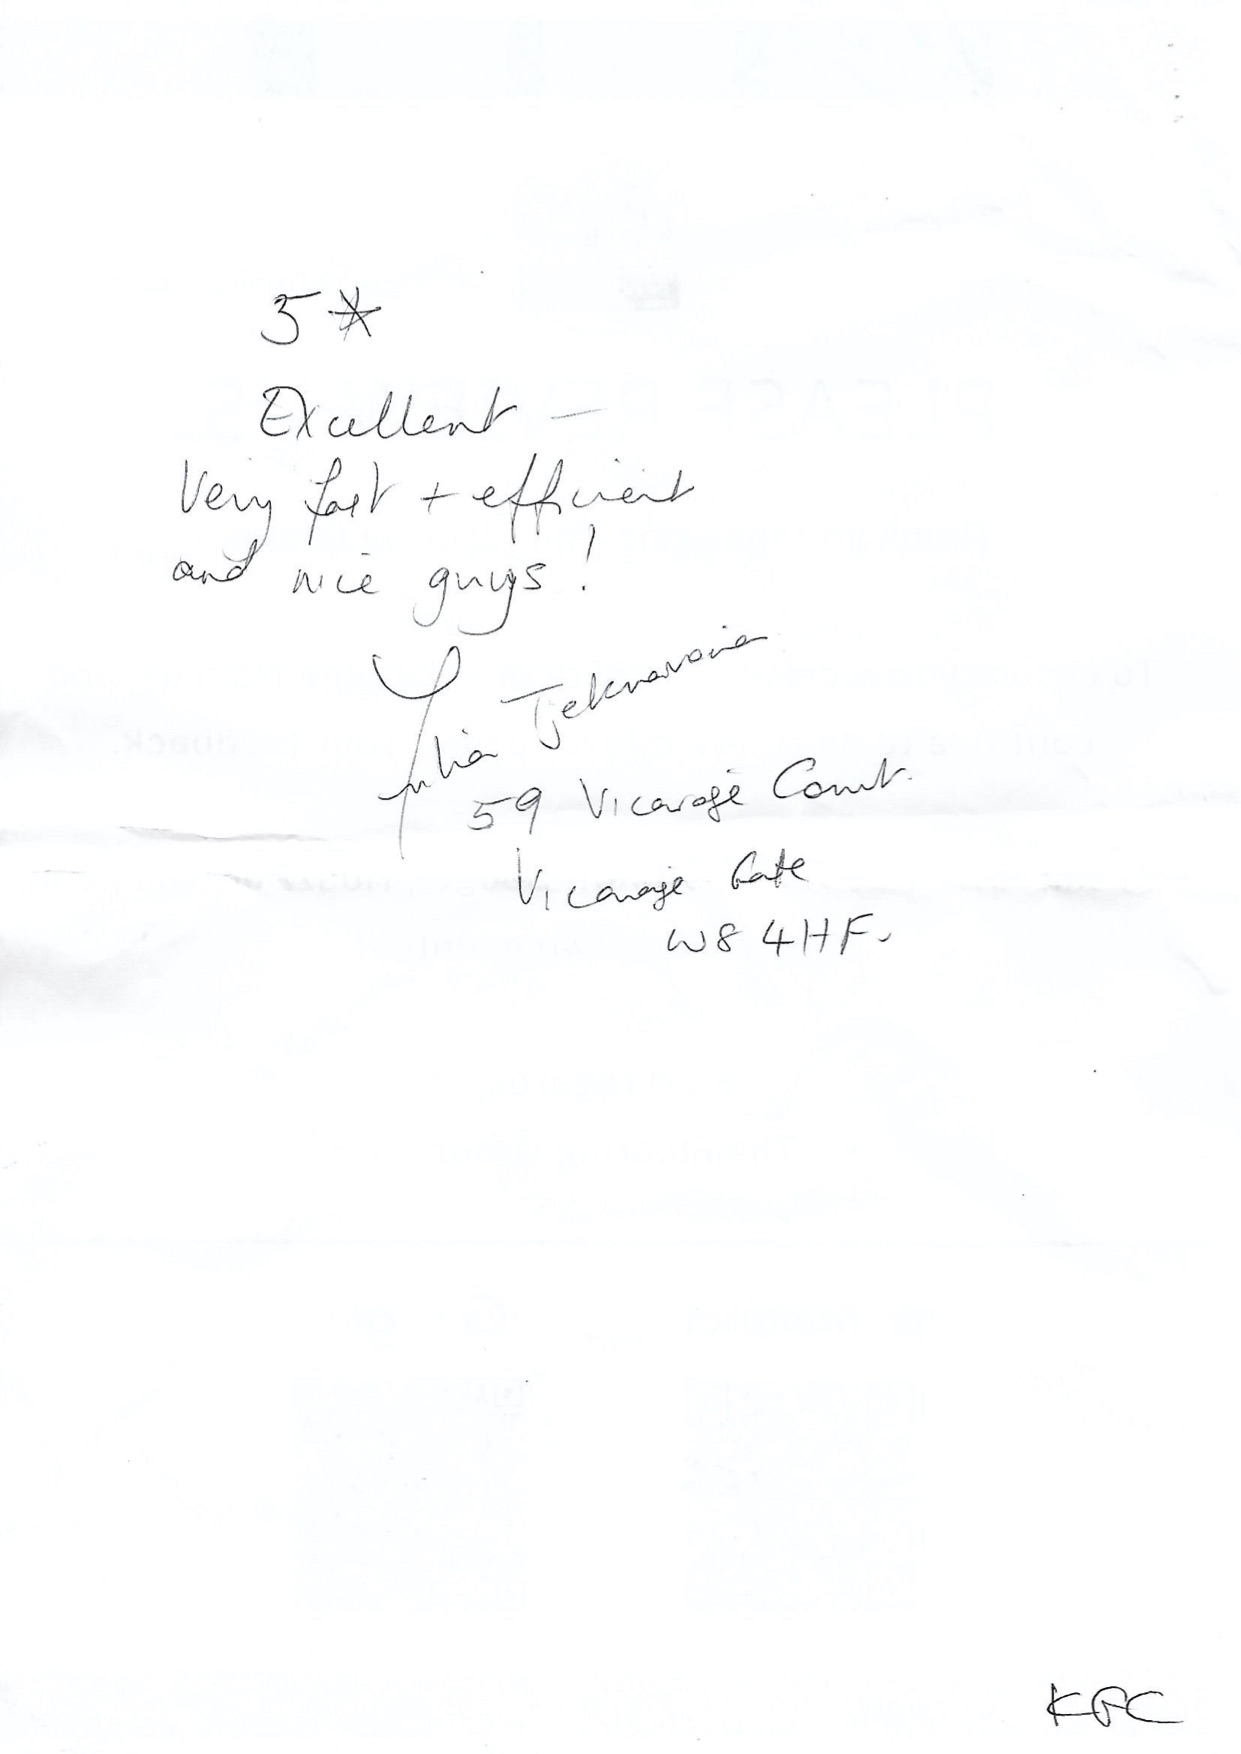 5*
Excellent –
Very fast + efficient
and nice guys!
Julia
59 Vicarage Court.
Vicarage Gate
W8 4HF.